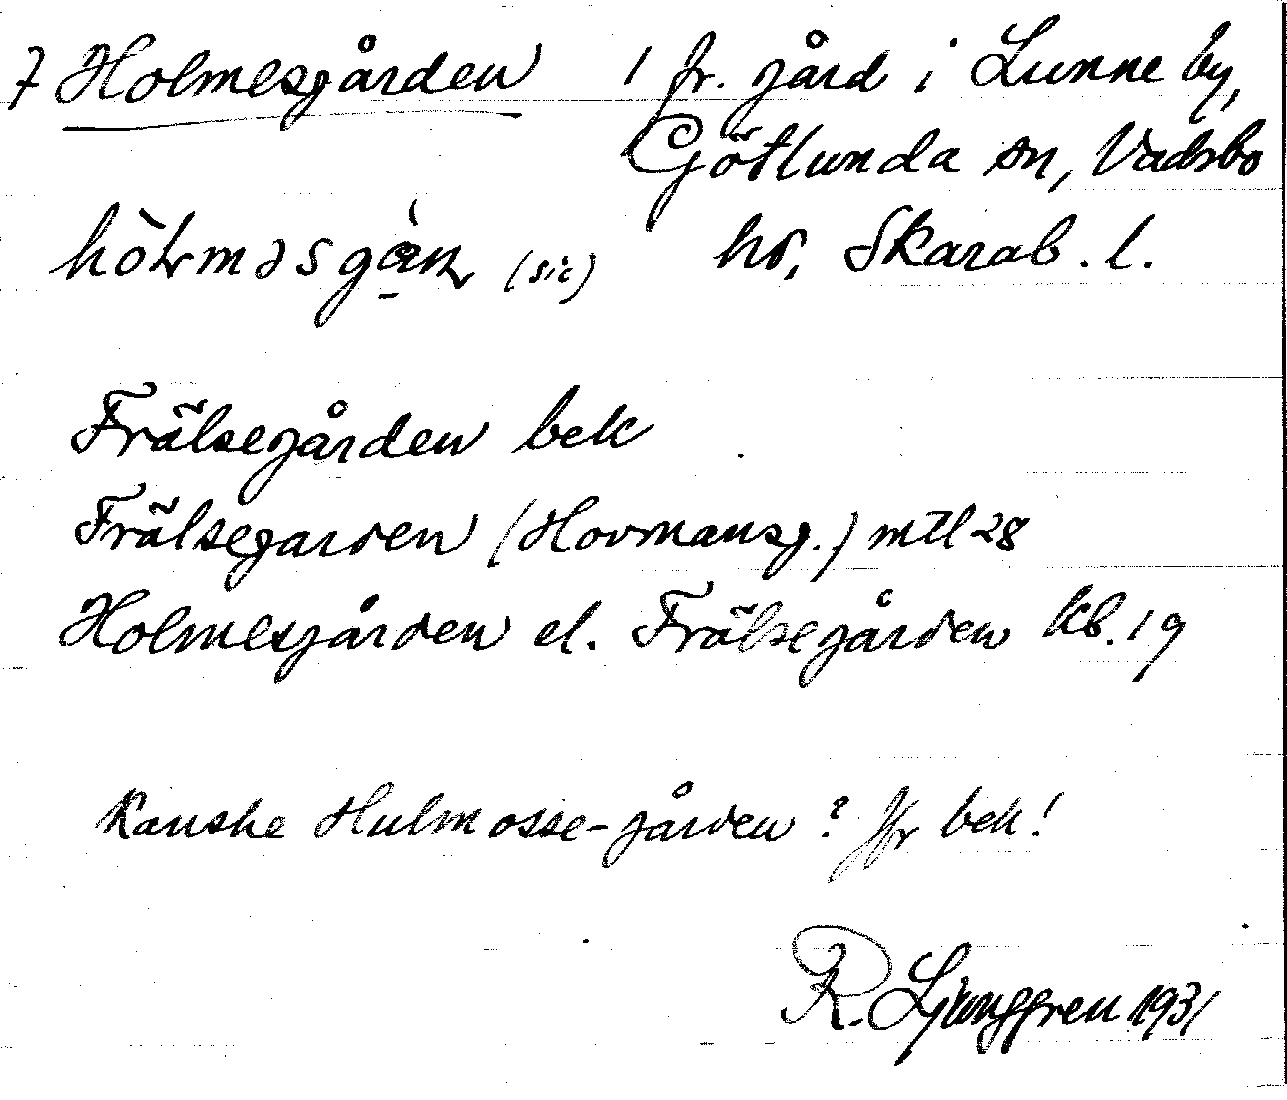 7 Holmesgården 1 fr. gård i Lunne by,
Götlunda sn, Vadsbo
hd, Skarab. l.
(sic)
Frälsegården bek
Frälsegarden (Hovmansg.) mtl 28
Holmesgården el. Frälsegården kb. 19
Kanske Hulmosse-gården? Jfr bek!
R. Ljunggren 1931